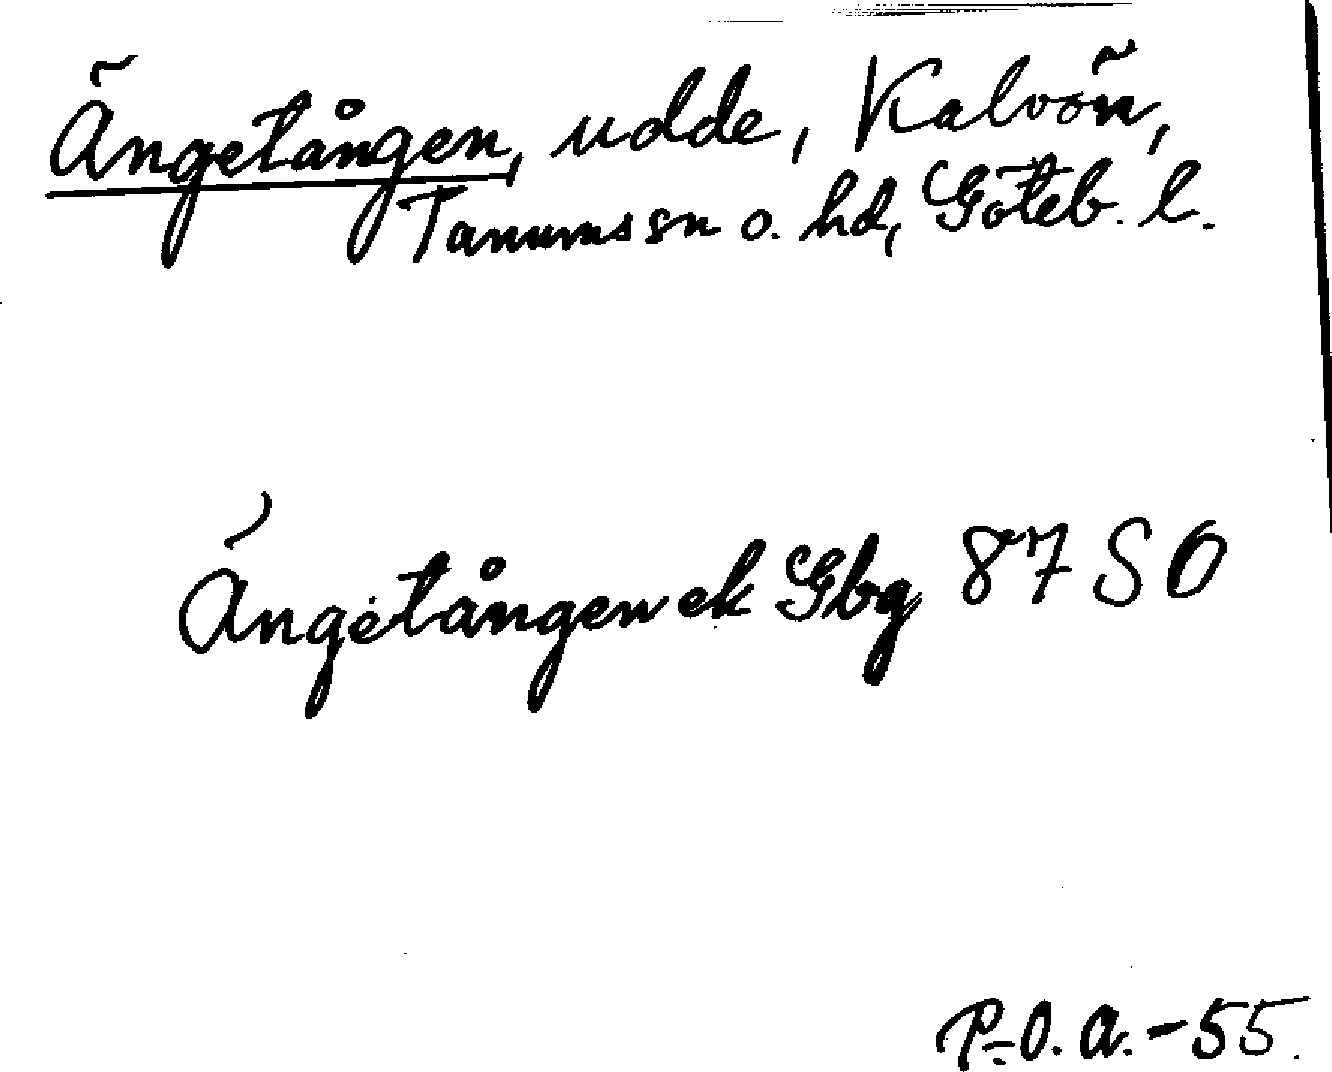 Ängetången, udde, Kalvön,
Tanums sn o. hd, Göteb. l.
Ängetången ek Gbg 87 SO
P.O.A.-55.